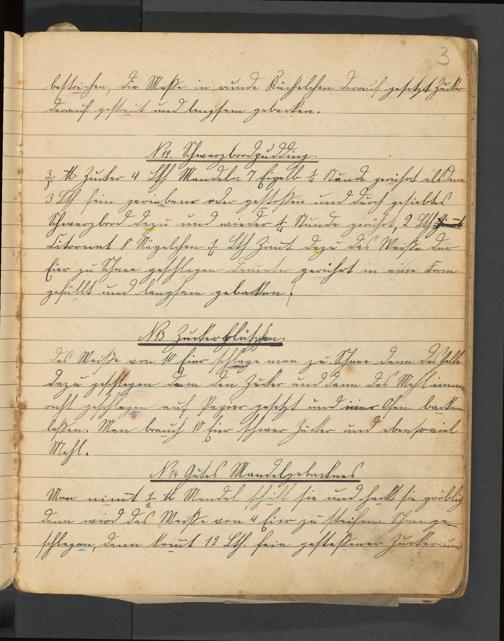 3
bestrichen, die Maße in runde Küchelchen darauf gesetzt Zucker
darauf gestreut und langsam gebacken.
No 12. Schwarzbrodpudding.
3/4 ℔ Zucker 4 Lth Mandeln 7 Eigelb 1/4 Stunde gerührt alsdann
3 Lth fein geriebene oder gestoßen und durch gesiebtes
Schwarzbrod dazu und wieder 1/4 Stunde gerührt, 2 Lth
Citronat 8 Nägelchen 1/4 Lth Zimt dazu das Weiße der
Eier zu Schnee geschlagen darunter gerührt in eine Form
gefüllt und langsam gebacken.
No 13 Zuckerblätzchen.
Das Weiße von 10 Eier schlage man zu Schnee dann das Gelbe
dazu geschlagen dann den Zucker und dann das Mehl immer
recht geschlagen auf Papier gesetzt und im Ofen backen
laßen. Man brauch 10 Eier schwer Zucker und ebenso viel
Mehl.
No 14 Gutes Mandelgebackenes
Man nimt 1/2 ℔ Mandel schält sie und hackt sie gröblig
dann wird das Weiße von 4 Eier zu steifem Schnee ge-
schlagen, dann komt 12 Lth. fein gestoßener Zucker und